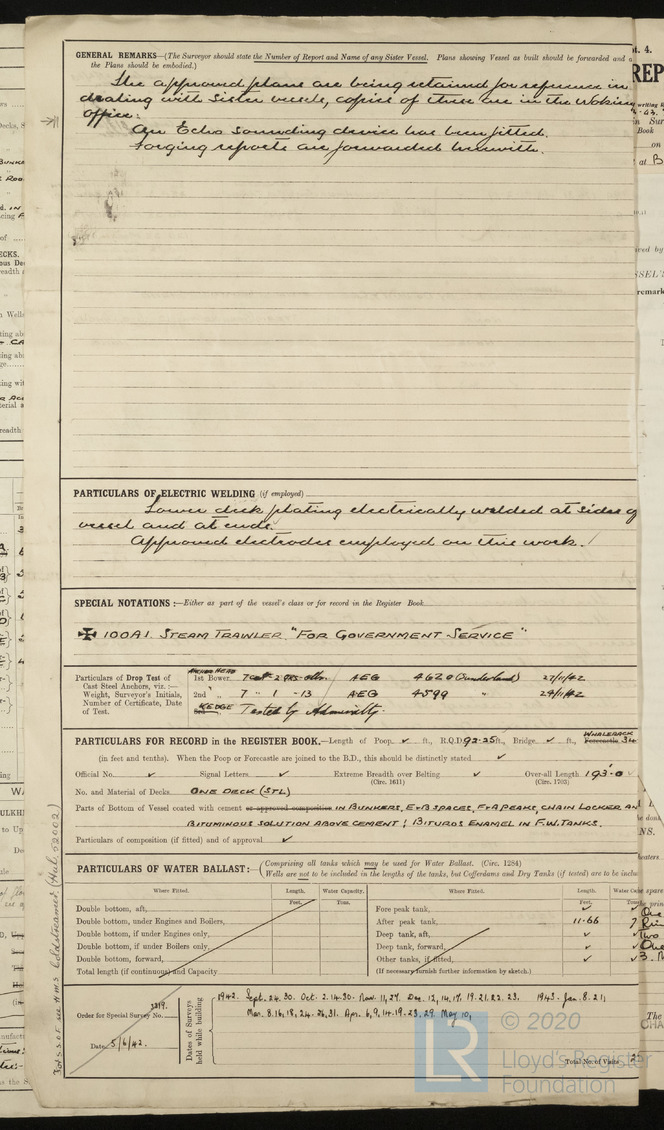 GENERAL REMARKS—(The Surveyor should state the Number of Report and Name of any Sister Vessel. Plans showing Vessel as built should be forwarded and
the Plans should be embodied.)
The approved plans are being retained for reference in
dealing with Sister vessels, copies of these are in the
office.
An Echo sounding device has been fitted.
Forging reports are forwarded herewith.
PARTICULARS OF ELECTRIC WELDING (if employed)
Lower deck plating electrically welded at sides of
vessel and at ends.
Approved electrodes employed on this work.
SPECIAL NOTATIONS:—Either as part of the vessel's class or for record in the Register Book
✠ 100A1. STEAM TRAWLER "FOR GOVERNMENT SERVICE"
Particulars of Drop Test of
Cast Steel Anchors, viz.:—
Weight, Surveyor's Initials,
Number of Certificate, Date
of Test.
1st Bower. AEG 4620 (Sunderland) 27/11/42
2nd " 7 " 1 - 13 AEG 4599 " 24/11/42
KEDGE Tested by Admiralty.
PARTICULARS FOR RECORD in the REGISTER BOOK.—Length of Poop ✓ ft., R.Q.D. 92.25 ft., Bridge ✓ ft., WHALEBACK Forecastle
(in feet and tenths). When the Poop or Forecastle are joined to the B.D., this should be distinctly stated ✓
Official No. ✓ Signal Letters ✓ Extreme Breadth over Belting ✓ Over-all Length 193.0
(Circ. 1611) (Circ. 1703)
No. and Material of Decks ONE DECK (STL)
Parts of Bottom of Vessel coated with cement or approved composition IN BUNKERS, E+B SPACES, F+A PEAKS, CHAIN LOCKER AN
BITUMINOUS SOLUTION ABOVE CEMENT; BITUROS ENAMEL IN F.W. TANKS.
Particulars of composition (if fitted) and of approval ✓
PARTICULARS OF WATER BALLAST:—(Comprising all tanks which may be used for Water Ballast. (Circ. 1284)
Wells are not to be included in the lengths of the tanks, but Cofferdams and Dry Tanks (if tested) are to be inclu
Where Fitted. Length. Water Capacity. Where Fitted. Length. Water Ca
Feet. Tons. Feet.
Double bottom, aft, Fore peak tank, ✓
Double bottom, under Engines and Boilers, After peak tank, 11.66
Double bottom, if under Engines only, Deep tank, aft, ✓
Double bottom, if under Boilers only, Deep tank, forward, ✓
Double bottom, forward, Other tanks, if fitted, ✓
Total length (if continuous) and Capacity (If necessary furnish further information by sketch.)
Order for Special Survey No. 3319.
Date 5/6/42.
Dates of Surveys
held while building
1942. Sept. 24. 30. Oct. 2. 14. 30. Nov. 11, 27. Dec. 12, 14, 17, 19. 21. 22. 23. 1943. Jan. 8. 21,
Mar. 8. 16, 18, 24. 26, 31. Apr. 6, 9, 14. 19. 23, 29 May 10,
Total No. of Visits
© 2020
LR
Lloyd's Register
Foundation